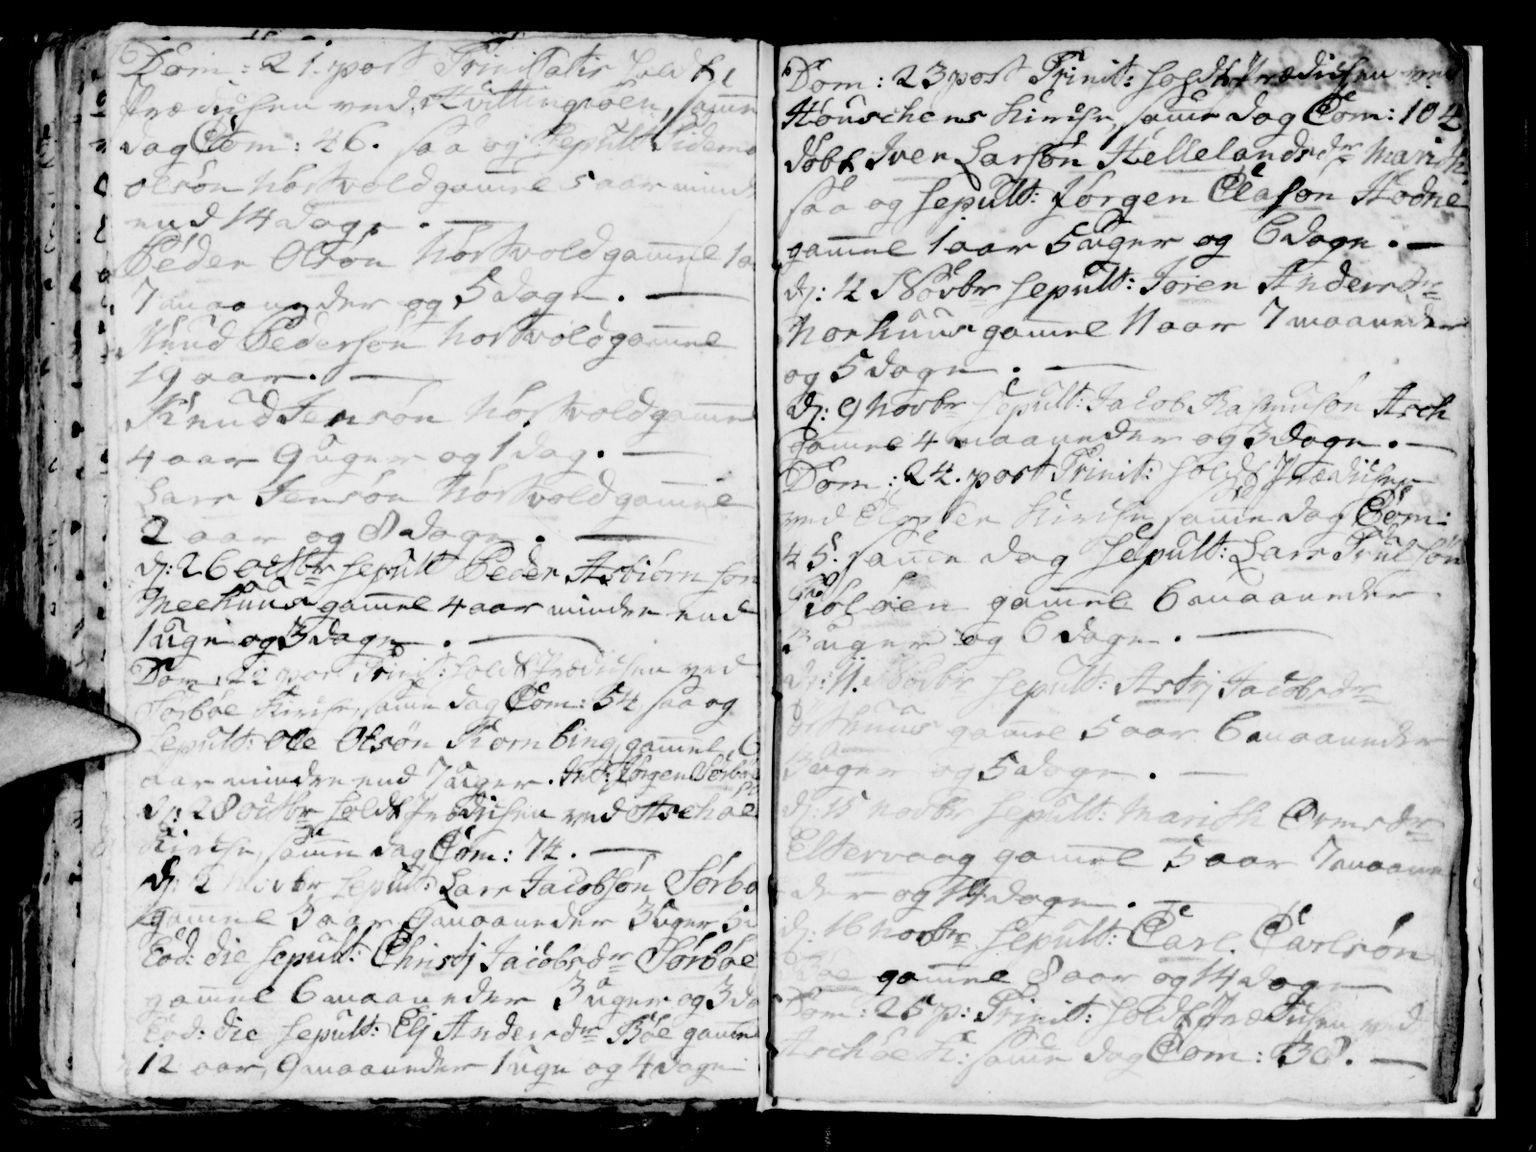 Dom: 21. post Trinitatis holdt
Prædichen ved Hvittingsöen, samme
dag Com: 46. saa og Sepult
Olsön Hortvold gamel 5 aar mindr
end 14 dage. —
Peder Olsön Hortvold gamel 1
7 maaneder og 5 dage. —
Knud Pedersön Hortvold gamel
19 aar. —
Knud Jensön Hortvold gamel
4 aar 9 uger og 1 dag. —
Lars Jensön Hortvold gamel
2 aar og 8 dage. —
d: 26 octobr Sepult Peder Asbiörnsön
Meehuus gamel 4 aar mindre end
1 uge og 3 dage. —
Dom: 22 post Trinit: holdt Prædichen ved
Sörböe Kirche, samme dag Com: 54 saa og
Sepult: Ole Olsön gamel 6
aar mindre end 7 uger. Jörgen Sörböe
d: 28 octbr holdt Prædichen ved Aschöe
Kirche, samme dag Com: 74. —
d: 2 Novbr Sepult: Lars Jacobsön Sörbö
gamel 3 aar 9 maaneder 3 uger 5
Eod: die Sepult: Christj Jacobsdr Sörböe
gamel 6 maaneder 3 uger og 3 da
Eod: die Sepult: Elj Andersdr Böe gamel
12 aar, 9 maaneder 1 uge og 4 dage
Dom: 23 post Trinit: holdt Prædichen ved
Houschens Kirche, samme dag Com: 104
döbt Iver Larsön Hellelands dr Marith.
saa og Sepult: Jörgen Olasön Hodne
gamel 1 aar 5 uger og 6 dage. —
d: 4 Novbr Sepult: Joren Andersdr
Norhuus gamel 11 aar 7 maaneder
og 5 dage. —
d: 9 Novbr Sepult: Jacob Rasmusön Asch
gamel 4 maaneder og 3 dage. —
Dom: 24. post Trinit: holdt Prædichen
ved Kirche samme dag Com:
45. samme dag Sepult: Lars
gamel 6 maaneder
3 uger og 6 dage. —
d: 11. Novbr Sepult: Astrj Jacobsdr
gamel 5 aar 6 maaneder
3 uger og 5 dage. —
d: 15 Novbr Sepult: Marith Ormsdr
Eltervaag gamel 5 aar 7 maane
der og 14 dage. —
d: 16 Novbr Sepult: Carl Carlsön
Böe gamel 8 aar og 14 dage
Dom: 25 p: Trinit: holdt Prædichen ved
Aschöe K: samme dag Com: 38. —